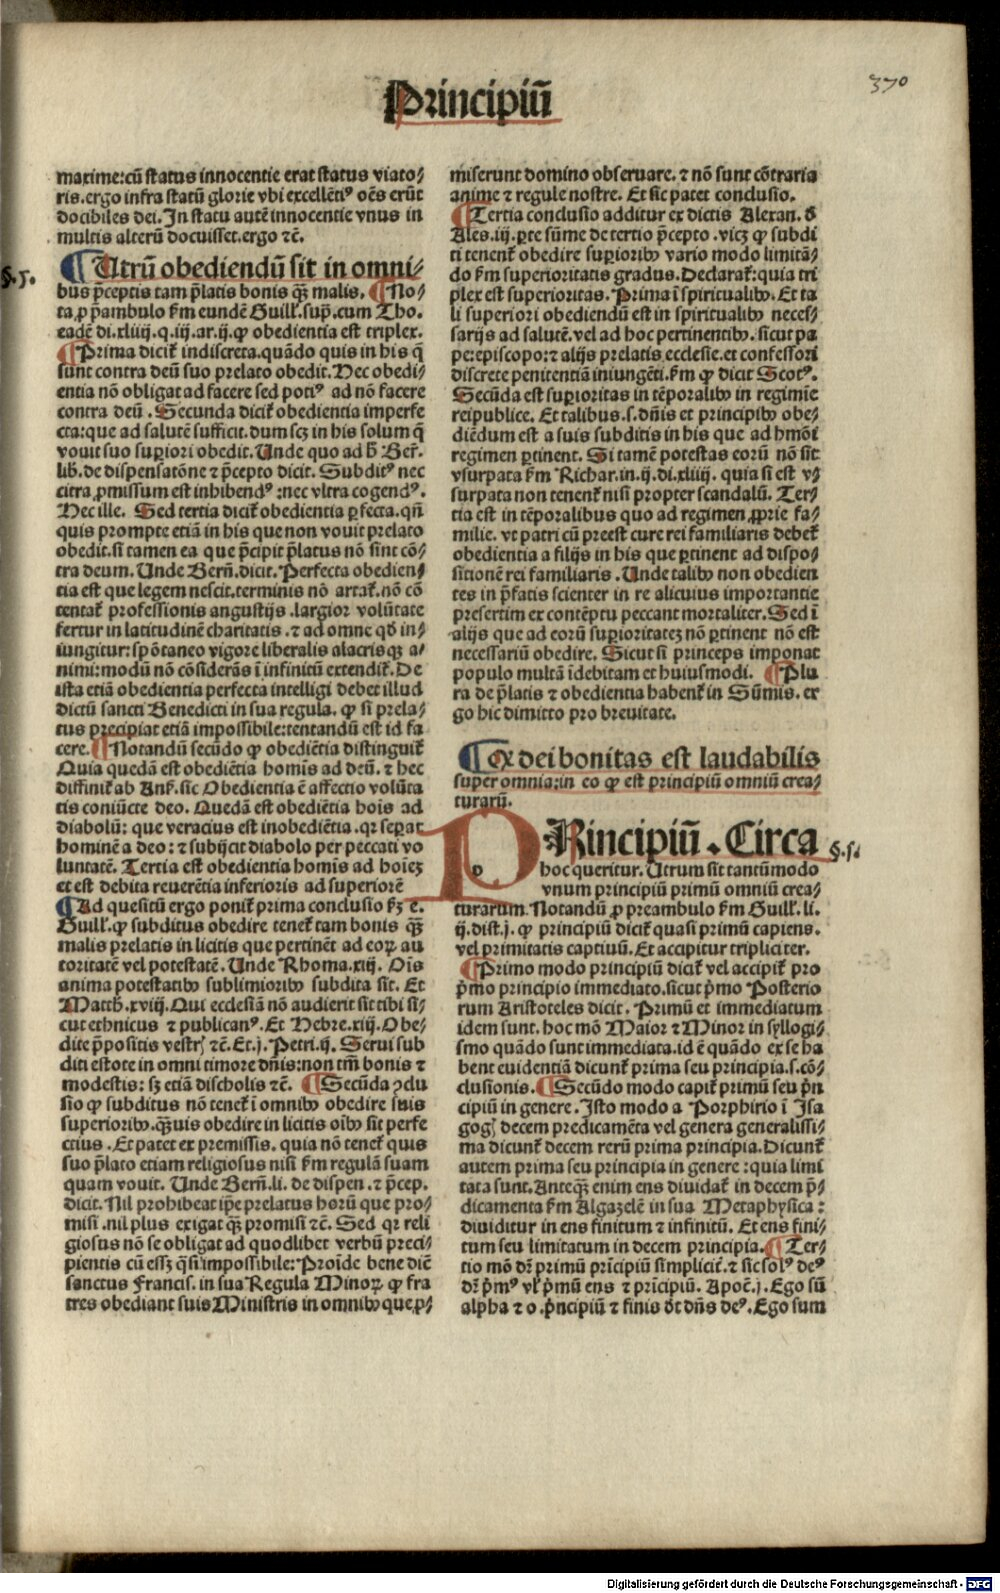 Principiū
370
maxime: cū status innocentie erat status viato⸗
ris. ergo infra statū glorie vbi excellētiꝰ oēs erūt
docibiles dei. In statu autē innocentie vnus in
multis alterū docuisset. ergo ⁊c̄.
§. 5.
¶ Utrū obediendū sit in omni⸗
bus p̄ceptis tam p̄latis bonis qꝫ malis. ¶ No⸗
ta, ꝓ p̄ambulo ẜm eundē Guill. sup̄. cum Tho.
eadē di. xliiij. q. iij. ar. ij. ꝙ obedientia est triplex.
¶ Prima dicit̃ indiscreta. quādo quis in his q̄
sunt contra deū suo prelato obedit. Hec obedi⸗
entia nō obligat ad facere sed potiꝰ ad nō facere
contra deū. Secunda dicit̃ obedientia imperfe
cta: que ad salutē sufficit. dum scꝫ in his solum q̄
vouit suo suꝑiori obedit. Unde quo ad h̄ Ber̄.
lib̄. de dispensatōne ⁊ p̄cepto dicit. Subditꝰ nec
citra ꝓmissum est inhibendꝰ: nec vltra cogendꝰ.
Hec ille. Sed tertia dicit̃ obedientia ꝑfecta. qn̄
quis prompte etiā in his que non vouit prelato
obedit. si tamen ea que p̄cipit p̄latus nō sint cō⸗
tra deum. Unde Bern̄. dicit. Perfecta obedien⸗
tia est que legem nescit. terminis nō artat̃. nō cō
tentat̃ professionis angustijs. largior volūtate
fertur in latitudinē charitatis. ⁊ ad omne qd̄ in⸗
iungitur: spōtaneo vigore liberalis alacrisqꝫ a⸗
nimi: modū nō cōsiderās ī infinitū extendit̃. De
ista etiā obedientia perfecta intelligi debet illud
dictū sancti Benedicti in sua regula. ꝙ si prela⸗
tus precipiat etiā impossibile: tentandū est id fa
cere. ¶ Notandū secūdo ꝙ obediētia distinguit̃
Quia quedā est obediētia homīs ad deū. ⁊ hec
diffinit̃ ab Ans̄. sic Obedientia ē affectio volūta
tis coniūcte deo. Quedā est obediētia hoīs ad
diabolū: que veracius est inobediētia. qꝛ seꝑat
hominē a deo: ⁊ subijcit diabolo per peccati vo
luntatē. Tertia est obedientia homīs ad hoīeꝫ
et est debita reuerētia inferioris ad superiorē
¶ Ad quesitū ergo ponit̃ prima conclusio ẜꝫ e.
Guill. ꝙ subditus obedire tenet̃ tam bonis qꝫ
malis prelatis in licitis que pertinēt ad eoꝝ au
toritatē vel potestatē. Unde Rhoma. xiij. Oīs
anima potestatibꝰ sublimioribꝰ subdita sit. Et
Matth. xviij. Qui ecclesiā nō audierit sit tibi si⸗
cut ethnicus ⁊ publicanꝰ. Et Hebre. xiij. Obe⸗
dite p̄positis vestrꝭ ⁊c̄. Et. j. Petri. ij. Serui sub
diti estote in omni timore dn̄is: non tm̄ bonis ⁊
modestis: sꝫ etiā discholis ⁊c̄. ¶ Secūda ꝯclu
sio ꝙ subditus nō tenet̃ ī omnibꝰ obedire suis
superioribꝰ. qꝫuis obedire in licitis oībꝰ sit perfe
ctius. Et patet ex premissis. quia nō tenet̃ quis
suo p̄lato etiam religiosus nisi ẜm regulā suam
quam vouit. Unde Bern̄. li. de dispen. ⁊ p̄cep.
dicit. Nil prohibeat ip̄e prelatus horū que pro⸗
misi. nil plus exigat qꝫ promisi ⁊c̄. Sed qꝛ reli
giosus nō se obligat ad quodlibet verbū preci⸗
pientis cū essꝫ q̄si impossibile: Proīde bene dic̄
sanctus Francis. in sua Regula Minoꝝ ꝙ fra
tres obediant suis Ministris in omnibꝰ que, ꝓ⸗
miserunt domino obseruare. ⁊ nō sunt cōtraria
anime ⁊ regule nostre. Et sic patet conclusio.
¶ Tertia conclusio additur ex dictis Alexan. đ
Ales. iij. ꝑte sūme de tertio p̄cepto. vicꝫ ꝙ subdi
ti tenent̃ obedire suꝑioribꝰ vario modo limitā⸗
do ẜm superioritatis gradus. Declarat̃: quia tri
plex est superioritas. Prima ī spiritualibꝰ. Et ta
li superiori obediendū est in spiritualibꝰ neces⸗
sarijs ad salutē. vel ad hoc pertinentibꝰ. sicut pa
pe: episcopo: ⁊ alijs prelatis ecclesie. et confessori
discrete penitentiā iniungēti. ẜm ꝙ dicit Scotꝰ.
Secūda est suꝑioritas in tēporalibꝰ in regimīe
reipublice. Et talibus. s. dn̄is et principibꝰ obe⸗
diēdum est a suis subditis in his que ad hmōi
regimen ꝑtinent. Si tamē potestas eorū nō sit
vsurpata ẜm Richar. in. ij. di. xliiij. quia si est v⸗
surpata non tenent̃ nisi propter scandalū. Ter⸗
tia est in tēporalibus quo ad regimen, ꝓprie fa⸗
milie. vt patri cū preest cure rei familiaris debet̃
obedientia a filijs in his que ꝑtinent ad dispo⸗
sitionē rei familiaris. Unde talibꝰ non obedien
tes in p̄fatis scienter in re alicuius importantie
presertim ex contēptu peccant mortaliter. Sed ī
alijs que ad eorū suꝑioritateꝫ nō ꝑtinent nō est
necessariū obedire. Sicut si princeps imponat
populo multā īdebitam et huiusmodi. ¶ Plu
ra de p̄latis ⁊ obedientia habent̃ in Sūmis. er
go hic dimitto pro breuitate.
¶ Ex dei bonitas est laudabilis
super omnia: in eo ꝙ est principiū omniū crea⸗
turarū.
PRincipiū. Circa
§. 1.
hoc queritur. Utrum sit tantūmodo
vnum principiū primū omniū crea⸗
turarum. Notandū ꝓ preambulo ẜm Guill. li.
ij. dist. j. ꝙ principiū dicit̃ quasi primū capiens.
vel primitatis captiuū. Et accipitur tripliciter.
¶ Primo modo principiū dicit̃ vel accipit̃ pro
p̄mo principio immediato. sicut p̄mo Posterio
rum Aristoteles dicit. Primū et immediatum
idem sunt. hoc mō Maior ⁊ Minor in syllogi⸗
smo quādo sunt immediata. id ē quādo ex se ha
bent euidentiā dicunt̃ prima seu principia. s. cō⸗
clusionis. ¶ Secūdo modo capit̃ primū seu p̄n
cipiū in genere. Isto modo a Porphirio ī Isa
gogꝭ decem predicamēta vel genera generalissi⸗
ma dicunt̃ decem rerū prima principia. Dicunt̃
autem prima seu principia in genere: quia limi
tata sunt. Anteqꝫ enim ens diuidat̃ in decem p̄⸗
dicamenta ẜm Algazelē in sua Metaphysica:
diuiditur in ens finitum ⁊ infinitū. Et ens fini⸗
tum seu limitatum in decem principia. ¶ Ter⸗
tio mō dr̄ primū prīcipiū simplicit̃. ⁊ sic solꝰ deꝰ
dr̄ p̄mꝰ vl̓ p̄mū ens ⁊ prīcipiū. Apoc̄. j. Ego sū
alpha ⁊ o. p̄ncipiū ⁊ finis dic̄t dn̄s deꝰ. Ego sum
Digitalisierung gefördert durch die Deutsche Forschungsgemeinschaft - DFG